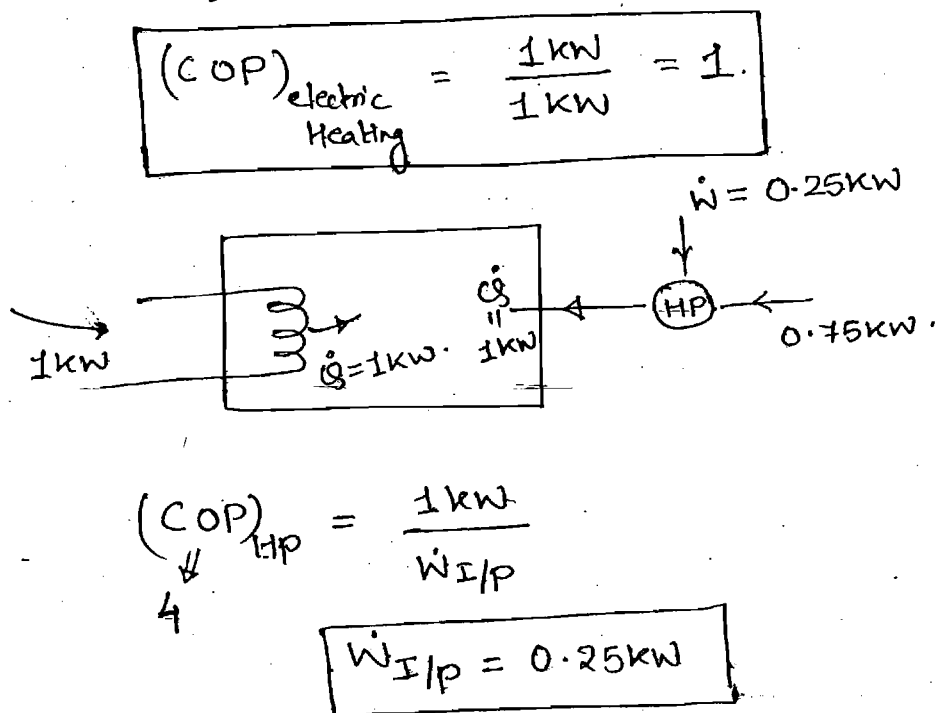 (COP) electric Heating = 1KW / 1KW = 1.
Ẇ = 0.25KW
1KW
Q̇=1KW.
Q̇ = 1KW
HP
0.75KW.
(COP)HP = 1KW / ẆI/P
4
ẆI/P = 0.25KW